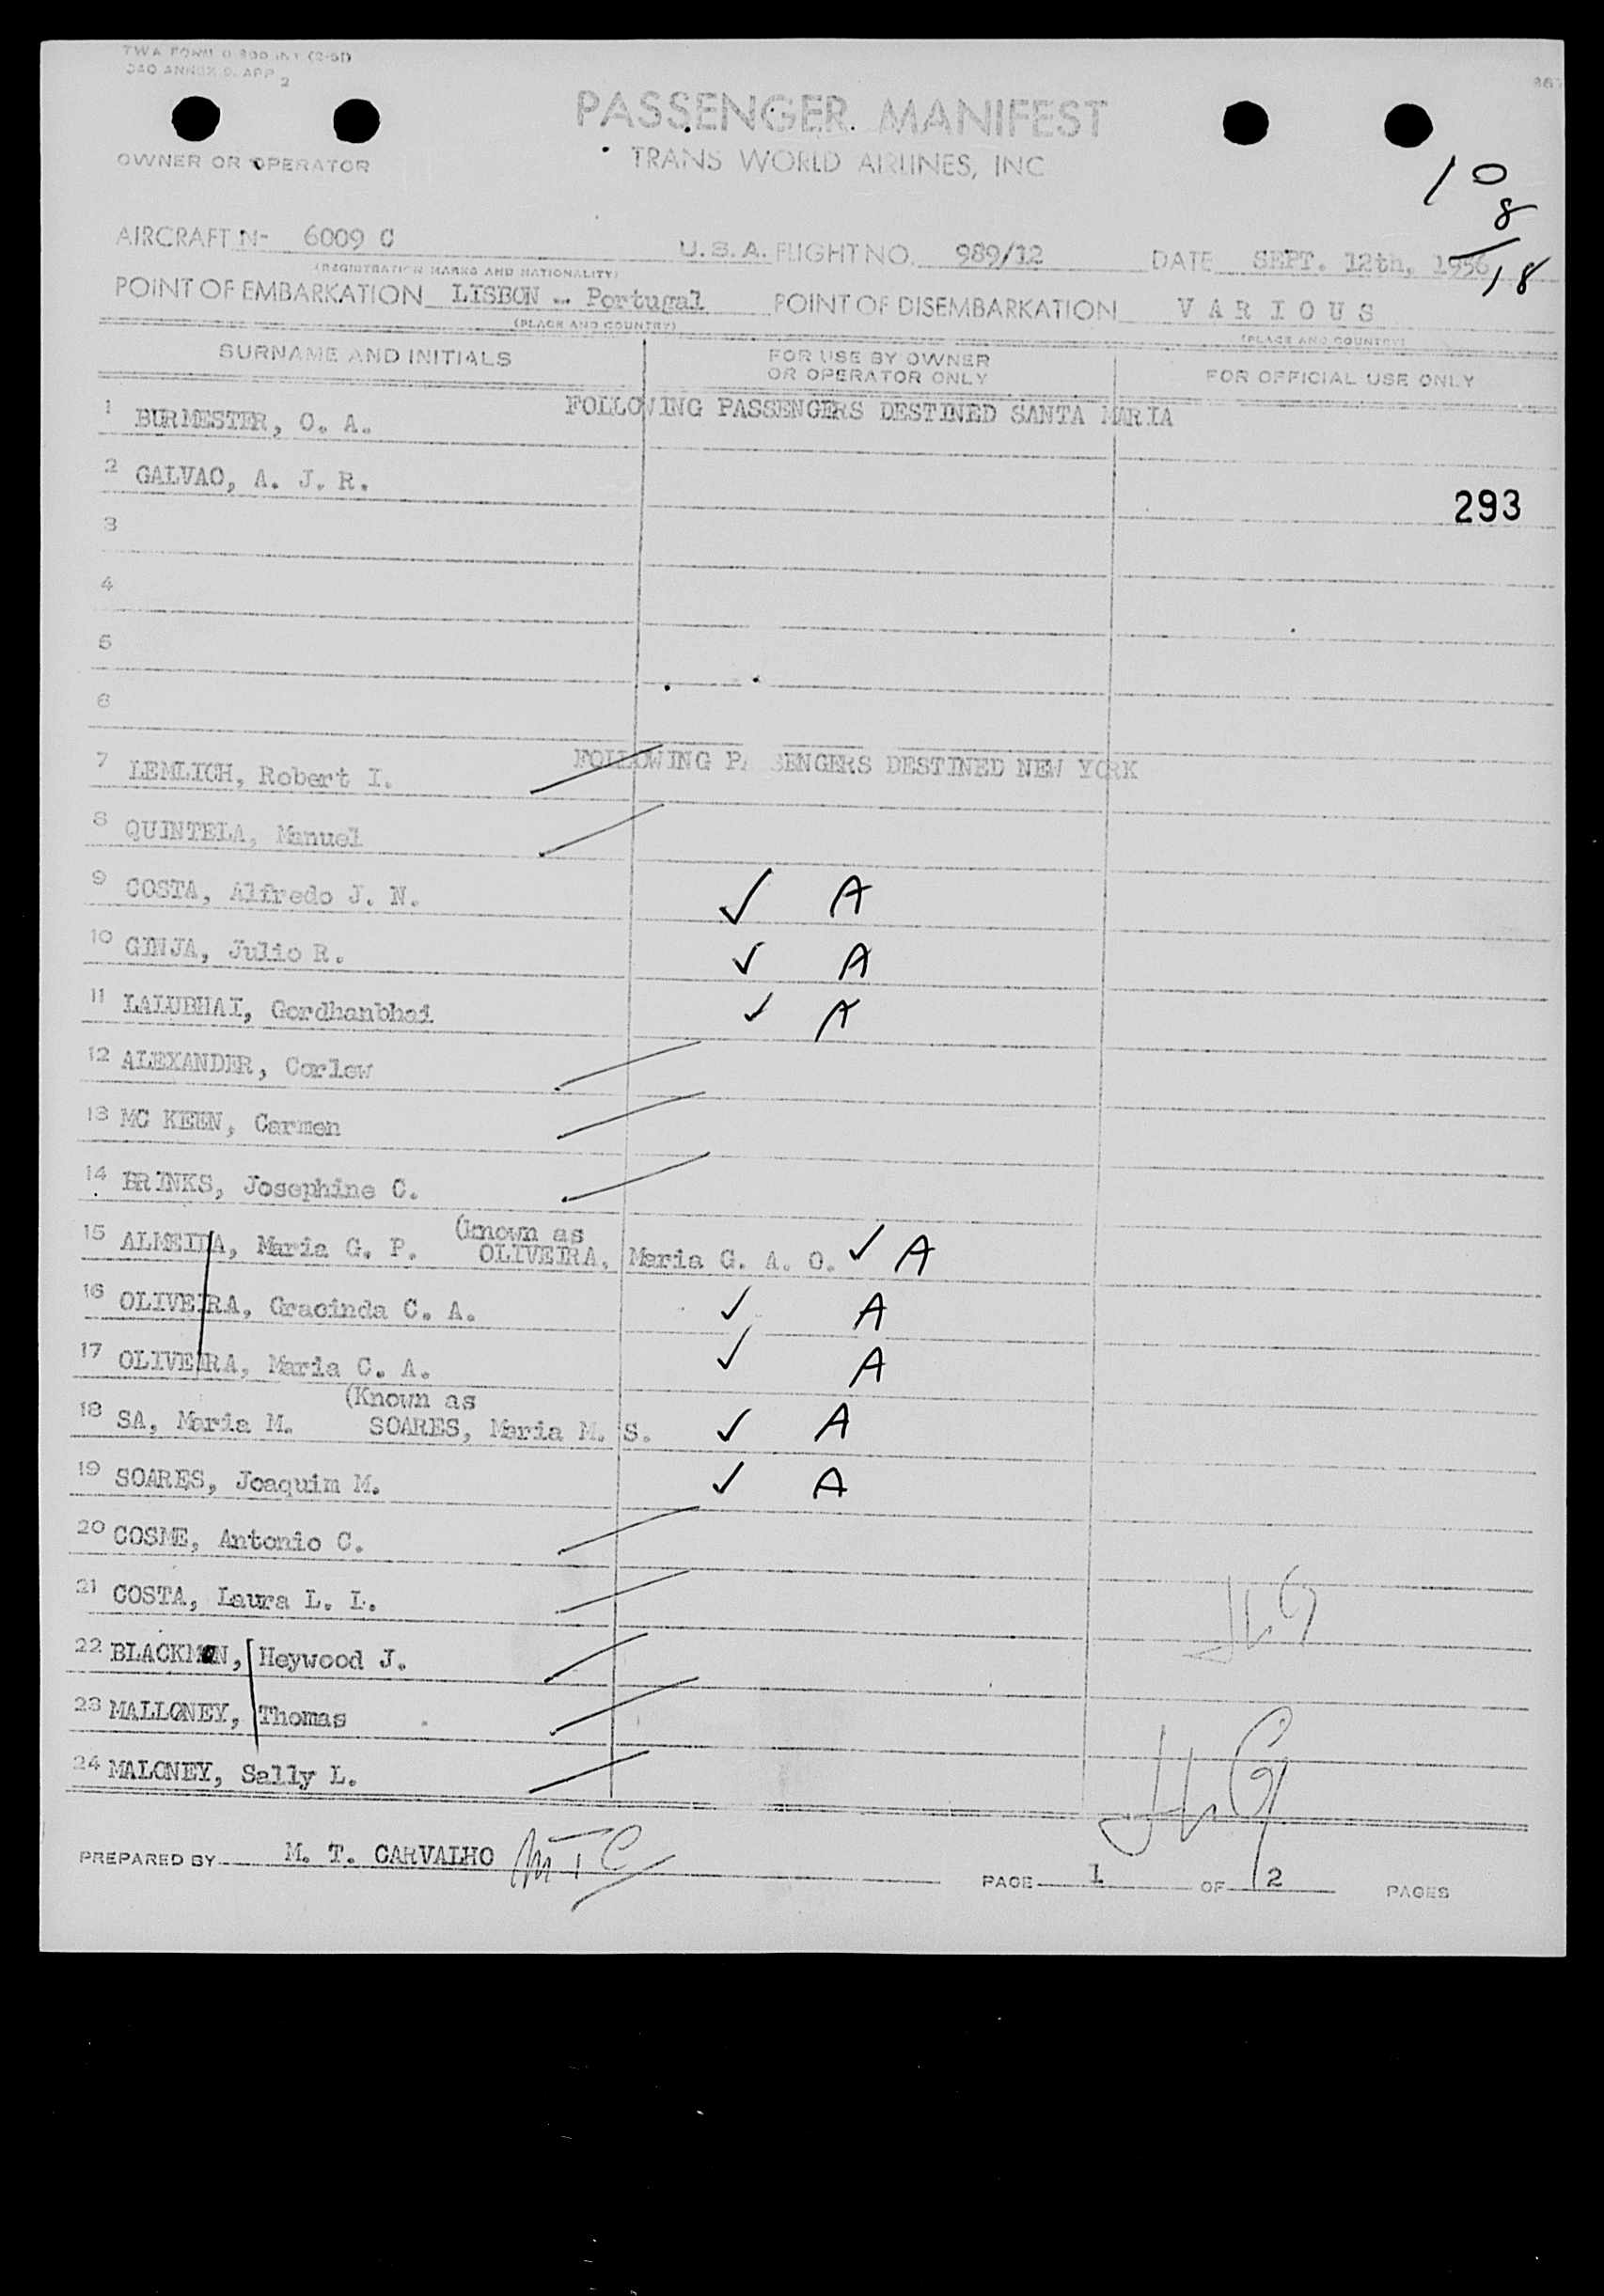 TWA FORM
2
PASSENGER MANIFEST
OWNER OR OPERATOR
TRANS WORLD AIRLINES, INC
10
8
18
AIRCRAFT N- 6009 C U.S.A. FLIGHT NO. 989/12 DATE SEPT. 12th, 1956
(REGISTRATION MARKS AND NATIONALITY)
POINT OF EMBARKATION LISBON -- Portugal POINT OF DISEMBARKATION VARIOUS
(PLACE AND COUNTRY) (PLACE AND COUNTRY)
SURNAME AND INITIALS FOR USE BY OWNER OR OPERATOR ONLY FOR OFFICIAL USE ONLY
FOLLOWING PASSENGERS DESTINED SANTA MARIA
1 BURMESTER, O. A.
2 GALVAO, A. J. R.
293
3
4
5
6
FOLLOWING PA SENGERS DESTINED NEW YORK
7 LEMLICH, Robert I.
8 QUINTELA, Manuel
9 COSTA, Alfredo J. N. ✓ A
10 GINJA, Julio R. ✓ A
11 LALUBHAI, Gordhanbhai ✓ A
12 ALEXANDER, Corlew
13 MC KEEN, Carmen
14 BRINKS, Josephine C.
15 ALMEIDA, Maria G. P. (known as
OLIVEIRA, Maria G. A. O. ✓ A
16 OLIVEIRA, Gracinda C. A. ✓ A
17 OLIVEIRA, Maria C. A. ✓ A
(Known as
18 SA, Maria M. SOARES, Maria M. S. ✓ A
19 SOARES, Joaquim M. ✓ A
20 COSME, Antonio C.
21 COSTA, Laura L. L.
22 BLACKMON, Heywood J.
23 MALLONEY, Thomas
24 MALONEY, Sally L.
PREPARED BY M. T. CARVALHO MTC
PAGE 1 OF 2 PAGES